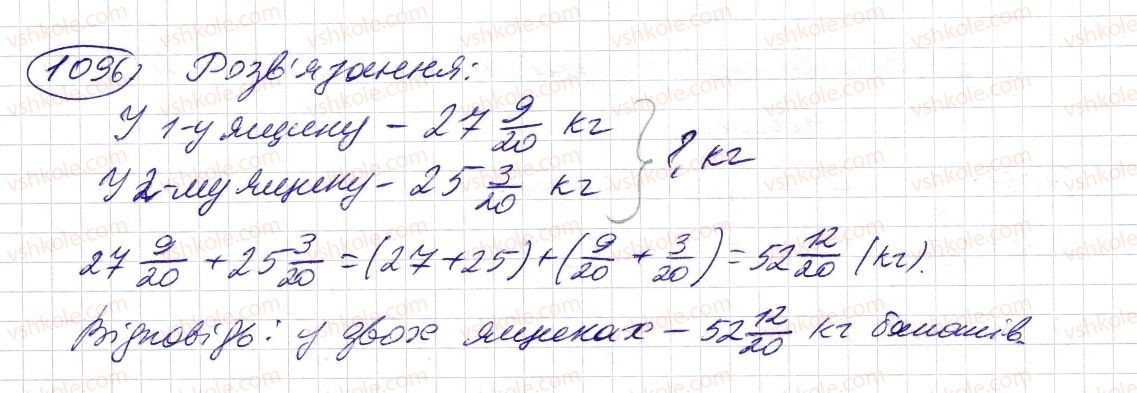 1096) Розв'язання:
У 1-у ящику – 27 9/20 кг
У 2-му ящику – 25 3/20 кг } ?, кг
27 9/20 + 25 3/20 = (27 + 25) + (9/20 + 3/20) = 52 12/20 (кг).
Відповідь: у двох ящиках – 52 12/20 кг бананів.